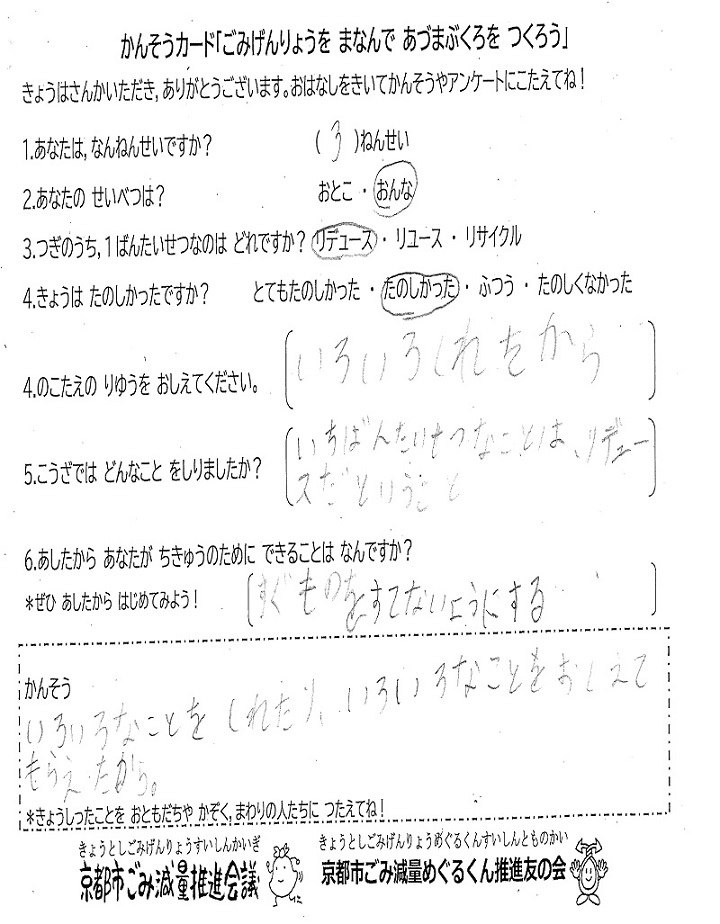 かんそうカード「ごみげんりょうを まなんで あづまぶくろを つくろう」
きょうはさんかいただき、ありがとうございます。おはなしをきいてかんそうやアンケートにこたえてね！
1.あなたは、なんねんせいですか？ （ 3 ）ねんせい
2.あなたの せいべつは？ おとこ ・ おんな
3.つぎのうち、1ばんたいせつなのは どれですか？ リデュース ・ リユース ・ リサイクル
4.きょうは たのしかったですか？ とてもたのしかった ・ たのしかった ・ ふつう ・ たのしくなかった
4.のこたえの りゆうを おしえてください。 いろいろしれたから
5.こうざでは どんなこと をしりましたか？ いちばんたいせつなことは、リデュー
スだということ
6.あしたから あなたが ちきゅうのために できることは なんですか？
*ぜひ あしたから はじめてみよう！ すぐものをすてないようにする
かんそう
いろいろなことをしれたり、いろいろなことをおしえて
もらえたから。
*きょうしったことを おともだちや かぞく、まわりの人たちに つたえてね！
きょうとしごみげんりょうすいしんかいぎ きょうとしごみげんりょうめぐるくんすいしんとものかい
京都市ごみ減量推進会議 京都市ごみ減量めぐるくん推進友の会